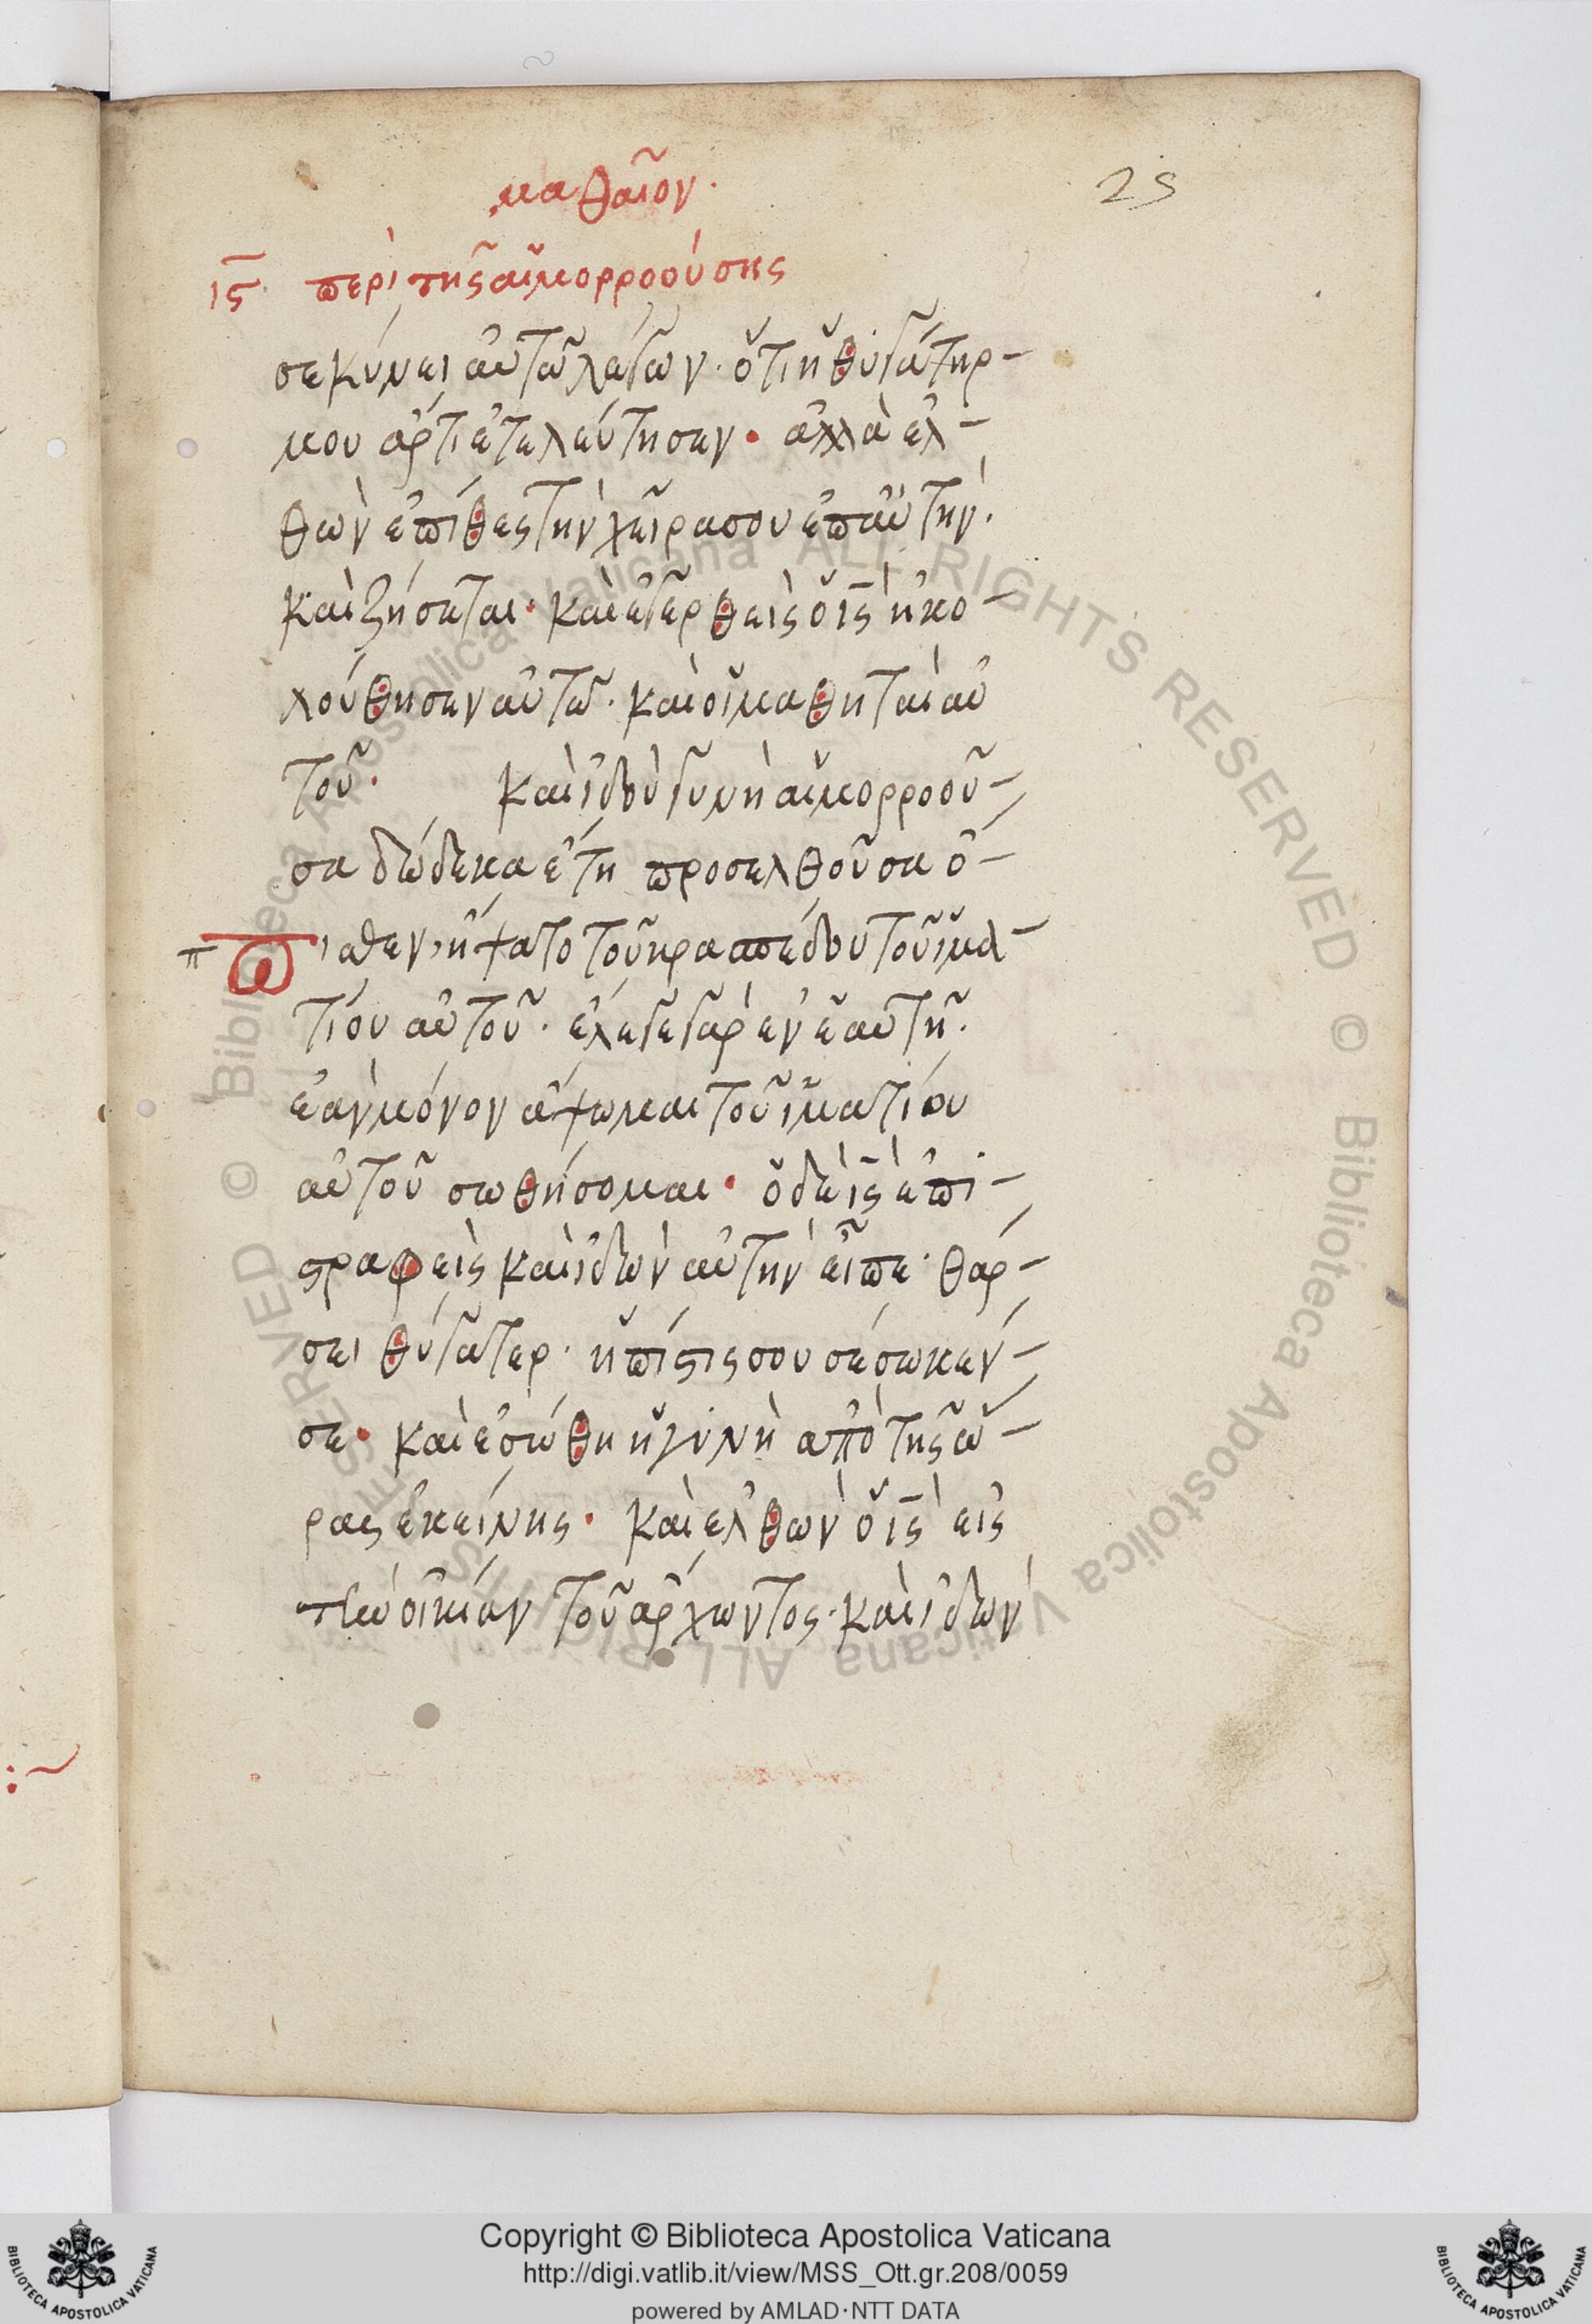 μαθαῖον.
25
ιϛ περὶ τῆς αἱμορροούσης
σεκύνει αὐτῶ λέγων· ὅτι ἡ θυγάτηρ
μου ἄρτι ἐτελεύτησεν· ἀλλὰ ἐλ
θὼν ἐπίθες τὴν χεῖρα σου ἐπ αὐτὴν.
καὶ ζήσεται· καὶ ἐγερθεὶς ὁ ις ἠκο
λούθησεν αὐτῶ· καὶ οἱ μαθηταὶ αὐ
τοῦ· καὶ ἰδοὺ γυνὴ αἱμορροοῦ
σα δώδεκα ἔτη προσελθοῦσα ὄ
πιθεν, ἥψατο τοῦ κρασπέδου τοῦ ἱμα
τίου αὐτοῦ· ἔλεγε γὰρ ἐν ἑαυτῆ·
ἐὰν μόνον ἅψωμαι τοῦ ἱματίου
αὐτοῦ σωθήσομαι· ὁ δὲ ις ἐπι
στραφεὶς καὶ ἰδὼν αὐτὴν εἶπε· θάρ
σει θύγατερ· ἡ πίστις σου σέσωκέν
σε· καὶ ἐσώθη ἡ γυνὴ ἀπὸ τῆς ὥ
ρας ἐκείνης· καὶ ἐλθὼν ὁ ις εἰς
τὴν οἰκίαν τοῦ ἄρχωντος· καὶ ἰδὼν
© Biblioteca Apostolica Vaticana ALL RIGHTS RESERVED
© Biblioteca Apostolica Vaticana ALL RIGHTS RESERVED
Copyright © Biblioteca Apostolica Vaticana
http://digi.vatlib.it/view/MSS_Ott.gr.208/0059
powered by AMLAD·NTT DATA
BIBLIOTECA APOSTOLICA VATICANA
BIBLIOTECA APOSTOLICA VATICANA